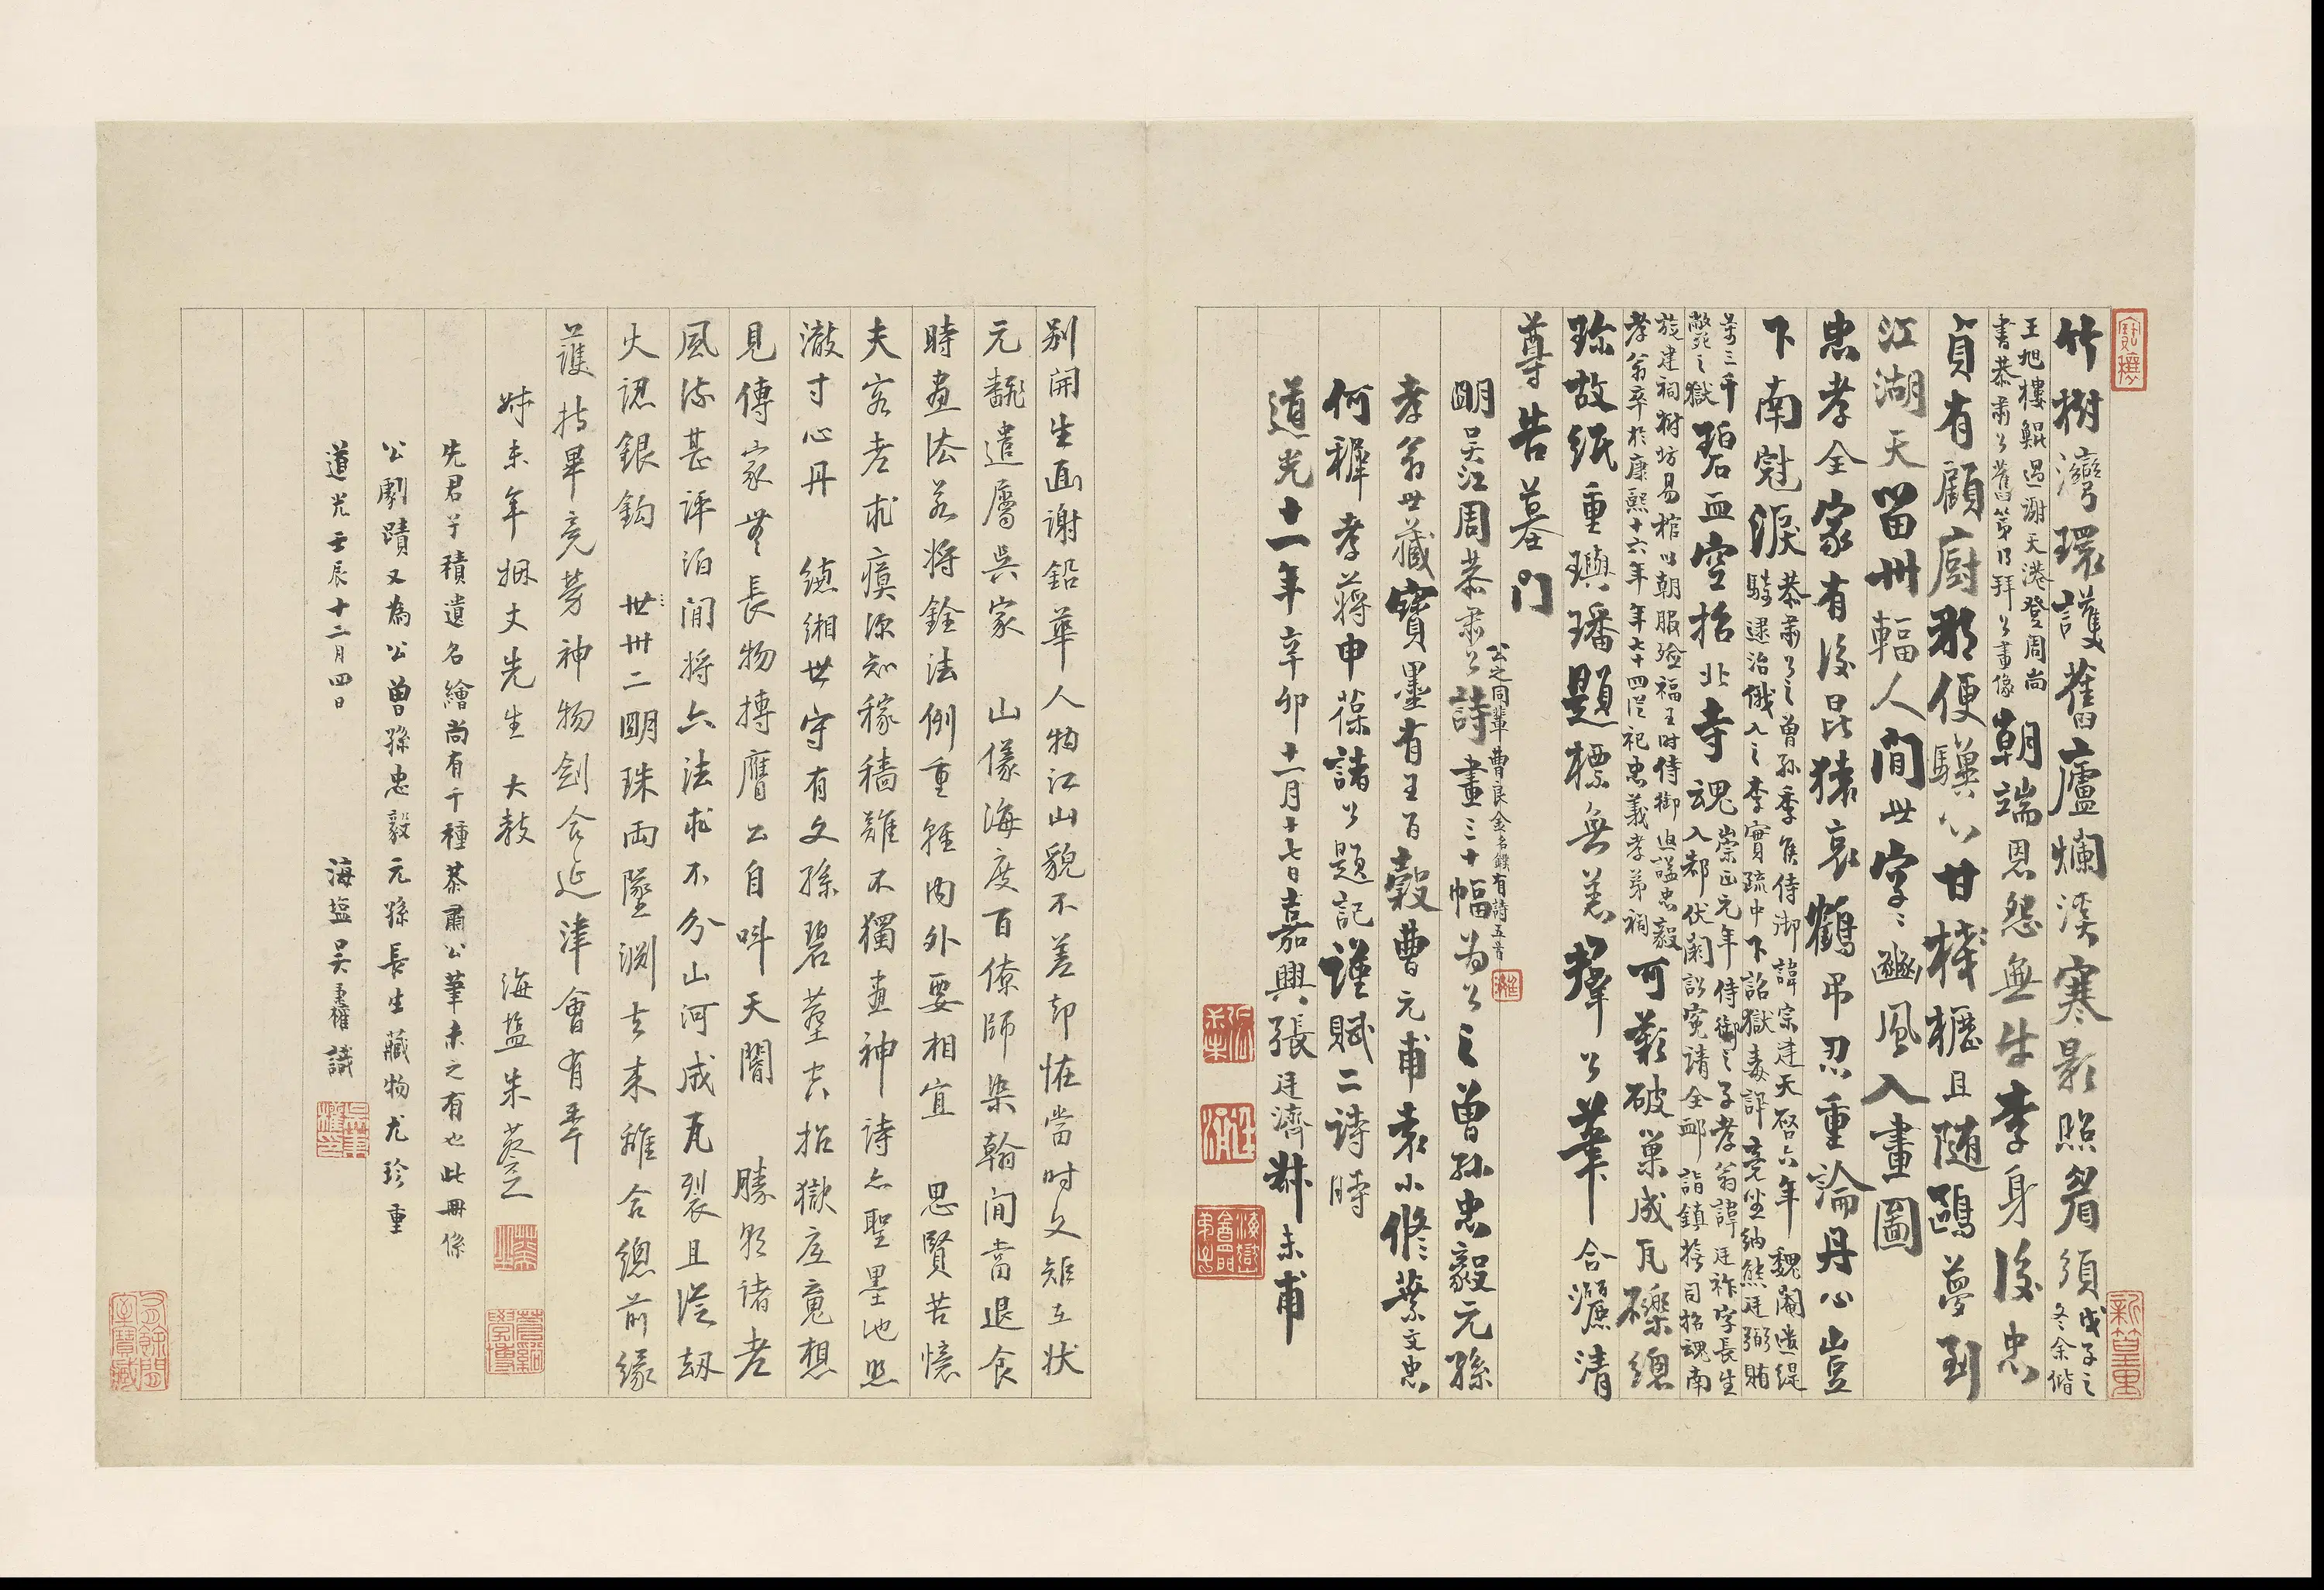 竹樹灣環護舊廬爛淡寒影照眉須戊子之冬余偕
王旭樓鯤過謝天港登周尚書恭肅公舊第乃拜公畫像朝端恩怨無牛李身後忠
貞有顧廚那便驥心甘棧櫪且隨鷗夢到
江湖天留卅輻人間世字字豳風入畫圖
忠孝全家有後昆猿哀鶴弔忍重論丹心豈
下南冠淚恭肅公之曾孫季侯侍御諱宗建天啓六年魏閹遣緹騎逮治俄入之李實疏中下詔獄毒訊竟坐納熊廷弼賄
萬三千斃之獄碧血空招北寺魂崇正元年侍御之子孝翁諱廷祚字長生入都伏闕訟寃請全卹詣鎮撫司招魂南
旋建祠樹坊易棺以朝服殮福王時侍御追諡忠毅孝翁卒於康熙十六年年七十四從祀忠義孝弟祠可歎破巢成瓦礫總
珍故紙重璵璠題標無恙擘公筆合灑清
尊告墓門
公之同輩曹良金名鑅有詩五首
明吳江周恭肅公詩畫三十幅為公之曾孫忠毅元孫
孝翁世藏寶墨有王百穀曹元甫袁小修葉文忠
何穉孝蔣申葆諸公題記謹賦二詩時
道光十一年辛卯十二月十七日嘉興張廷濟叔未甫
別開生面謝鉛華人物江山貌不差却怪當时文矩在狀
元翻遣屬吳家 山儀海度百僚師染翰間當退食
時畫法若將銓法例重輕內外要相宜 思賢苦憶
夫容老求瘼深知稼穡難不獨畫神詩亦聖墨池照
澈寸心丹 縹緗世守有文孫碧葬空招獄底魂想
見傳家無長物摶膺公自叫天閽 勝朝諸老
風流甚評泊間將六法求不分山河成瓦裂且從劫
火認銀鈎 世世卅二明珠兩墜淵去來離合總前緣
護持畢竟勞神物劍合延津會有年
姊未年姻丈先生 大教 海鹽朱葵之
先君子積遺名繪尚有千種恭肅公筆未之有也此冊係
公劇蹟又為公曾孫忠毅元孫長生藏物尤珍重
道光壬辰十二月四日 海鹽吳秉權識